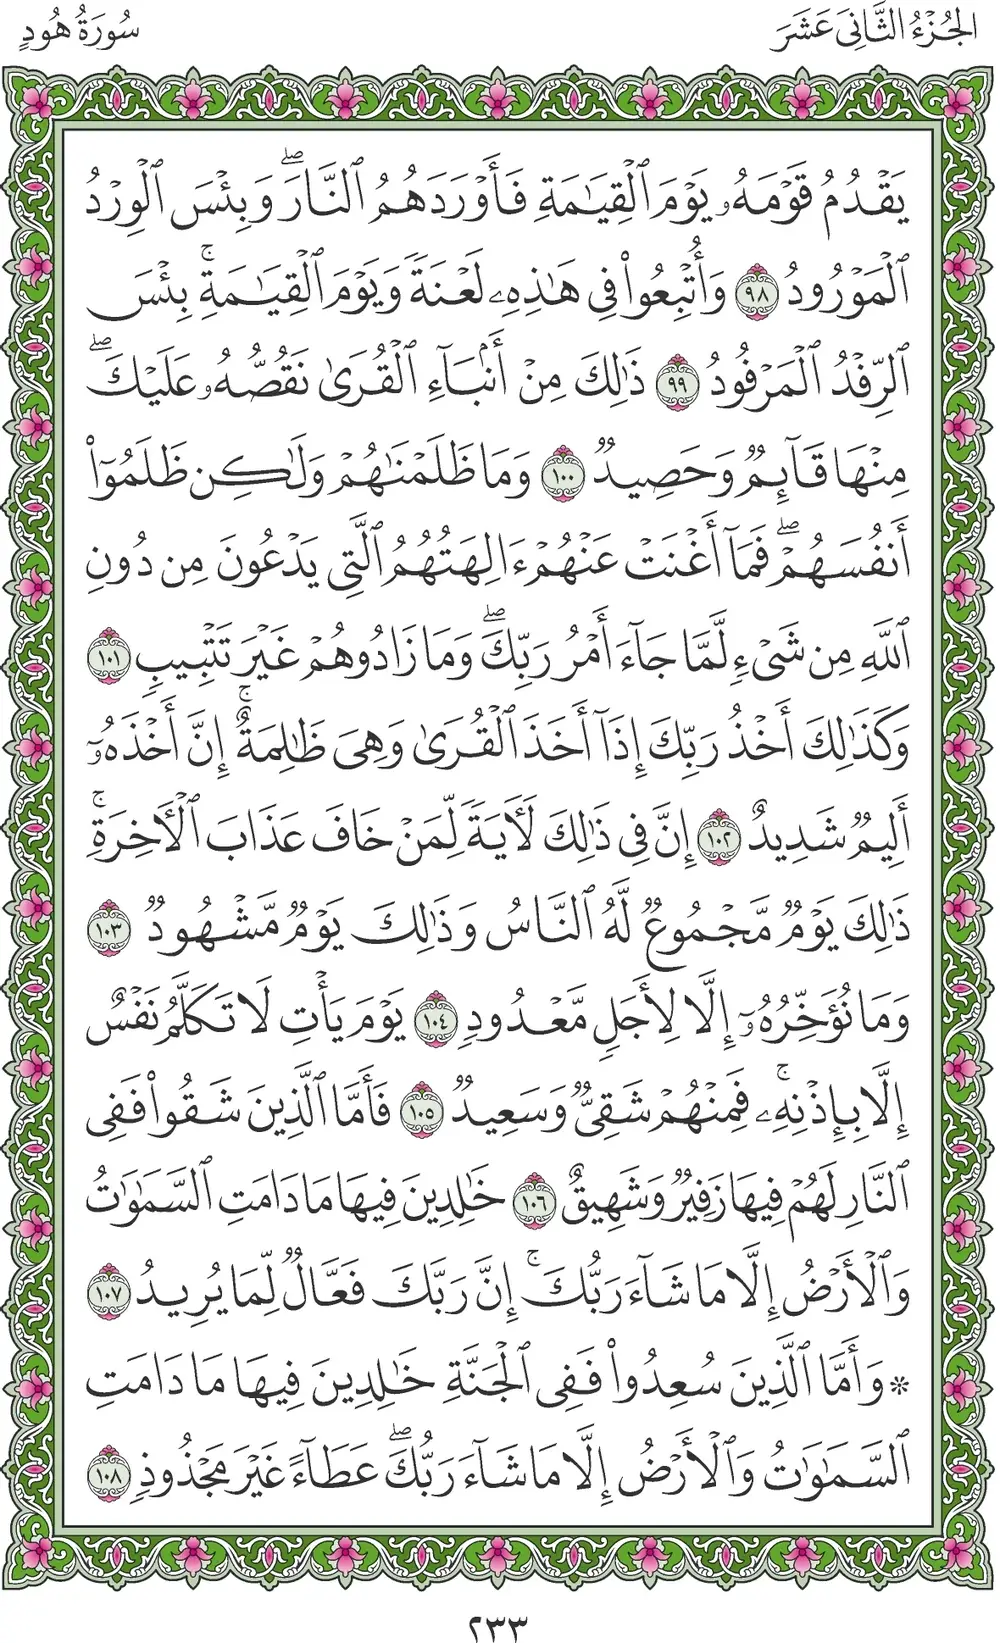 الجُزْءُ الثَّانِيَ عَشَرَ
سُورَةُ هُودٍ
يَقْدُمُ قَوْمَهُۥ يَوْمَ ٱلْقِيَٰمَةِ فَأَوْرَدَهُمُ ٱلنَّارَۖ وَبِئْسَ ٱلْوِرْدُ
ٱلْمَوْرُودُ ٩٨ وَأُتْبِعُوا۟ فِى هَٰذِهِۦ لَعْنَةً وَيَوْمَ ٱلْقِيَٰمَةِۚ بِئْسَ
ٱلرِّفْدُ ٱلْمَرْفُودُ ٩٩ ذَٰلِكَ مِنْ أَنۢبَآءِ ٱلْقُرَىٰ نَقُصُّهُۥ عَلَيْكَۖ
مِنْهَا قَآئِمٌ وَحَصِيدٌ ١٠٠ وَمَا ظَلَمْنَٰهُمْ وَلَٰكِن ظَلَمُوٓا۟
أَنفُسَهُمْۖ فَمَآ أَغْنَتْ عَنْهُمْ ءَالِهَتُهُمُ ٱلَّتِى يَدْعُونَ مِن دُونِ
ٱللَّهِ مِن شَىْءٍ لَّمَّا جَآءَ أَمْرُ رَبِّكَۖ وَمَا زَادُوهُمْ غَيْرَ تَتْبِيبٍ ١٠١
وَكَذَٰلِكَ أَخْذُ رَبِّكَ إِذَآ أَخَذَ ٱلْقُرَىٰ وَهِىَ ظَٰلِمَةٌۚ إِنَّ أَخْذَهُۥٓ
أَلِيمٌ شَدِيدٌ ١٠٢ إِنَّ فِى ذَٰلِكَ لَءَايَةً لِّمَنْ خَافَ عَذَابَ ٱلْءَاخِرَةِۚ
ذَٰلِكَ يَوْمٌ مَّجْمُوعٌ لَّهُ ٱلنَّاسُ وَذَٰلِكَ يَوْمٌ مَّشْهُودٌ ١٠٣
وَمَا نُؤَخِّرُهُۥٓ إِلَّا لِأَجَلٍ مَّعْدُودٍ ١٠٤ يَوْمَ يَأْتِ لَا تَكَلَّمُ نَفْسٌ
إِلَّا بِإِذْنِهِۦۚ فَمِنْهُمْ شَقِىٌّ وَسَعِيدٌ ١٠٥ فَأَمَّا ٱلَّذِينَ شَقُوا۟ فَفِى
ٱلنَّارِ لَهُمْ فِيهَا زَفِيرٌ وَشَهِيقٌ ١٠٦ خَٰلِدِينَ فِيهَا مَا دَامَتِ ٱلسَّمَٰوَٰتُ
وَٱلْأَرْضُ إِلَّا مَا شَآءَ رَبُّكَۚ إِنَّ رَبَّكَ فَعَّالٌ لِّمَا يُرِيدُ ١٠٧
* وَأَمَّا ٱلَّذِينَ سُعِدُوا۟ فَفِى ٱلْجَنَّةِ خَٰلِدِينَ فِيهَا مَا دَامَتِ
ٱلسَّمَٰوَٰتُ وَٱلْأَرْضُ إِلَّا مَا شَآءَ رَبُّكَۖ عَطَآءً غَيْرَ مَجْذُوذٍ ١٠٨
٢٣٣